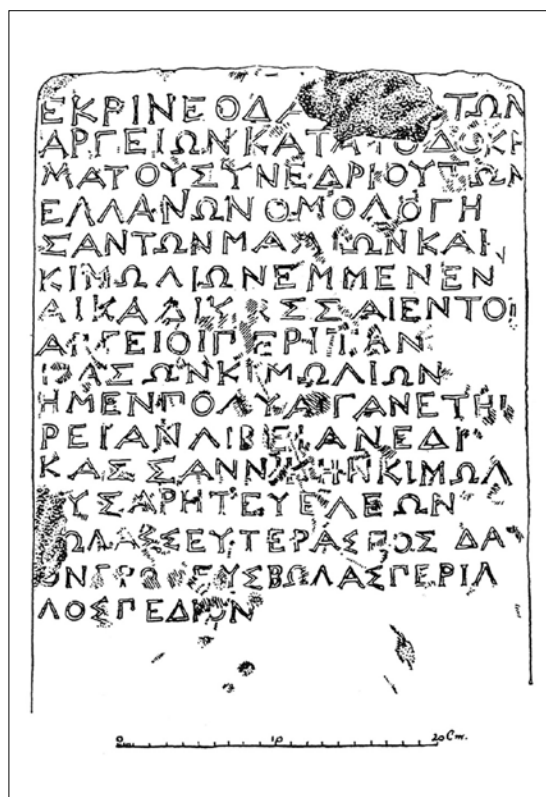 ΕΚΡΙΝΕΟΔΑ ΤΩΝ
ΑΡΓΕΙΩΝΚΑΤΑΤΟΔΟΚΗ
ΜΑΤΟΥΣΥΝΕΔΡΙΟΥΤΩΝ
ΕΛΛΑΝΩΝΟΜΟΛΟΓΗ
ΣΑΝΤΩΝΜΑΛΙΩΝΚΑΙ
ΚΙΜΩΛΙΩΝΕΜΜΕΝΕΝ
ΑΙΚΑΔΙΚΑΣΣΑΙΕΝΤΟΙ
ΑΡΓΕΙΟΙΠΕΡΙΤΑΝ
ΝΑΣΩΝΚΙΜΩΛΙΩΝ
ΗΜΕΝΠΟΛΥΑΙΓΑΝΕΤΗ
ΡΕΙΑΝΛΙΒΕΙΑΝΕΔΙ
ΚΑΣΣΑΝΝΙΚΗΝΚΙΜΩΛ
ΟΥΣΑΡΗΤΕΥΕΛΕΩΝ
ΩΛΑΣΣΕΥΤΕΡΑΣΠΟΣ ΔΑ
ΟΝΓΡΟΦΕΥΣΒΩΛΑΣΠΕΡΙΛ
ΛΟΣΠΕΔΙΟΝ
0 10 20 Cm.